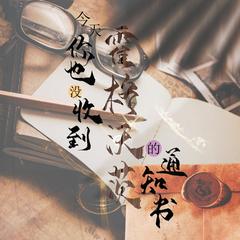 今天
你也没收到
霍格沃茨
的通知书